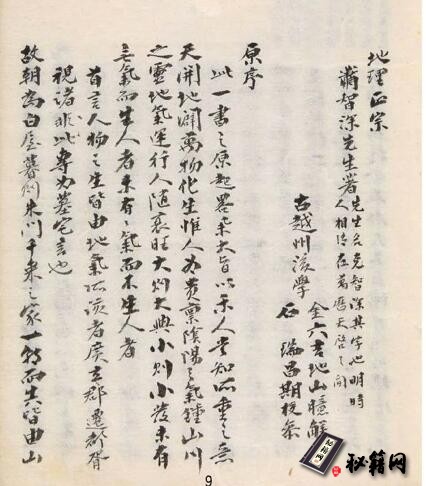 地理正宗
蕭智深先生著 先生名克智深其字也明時
人相傳在萬歷天啓之間
古越州後學
金六吉地山臆解
石瑞昌期校叅
原序
此一書之原起畧菜大旨以示人當知所重之意
天開地闢萬物化生惟人為貴稟陰陽之氣鐘山川
之靈地氣運行人隨衰旺大則大興小則小發未有
無氣而生人者未有氣而不生人者
首言人物之生皆由地氣所該者廣京郡遷都胥
視諸此非專為墓宅言也
故朝為白屋暮為朱門千乘之家一敗而失皆由山
秘籍网
9